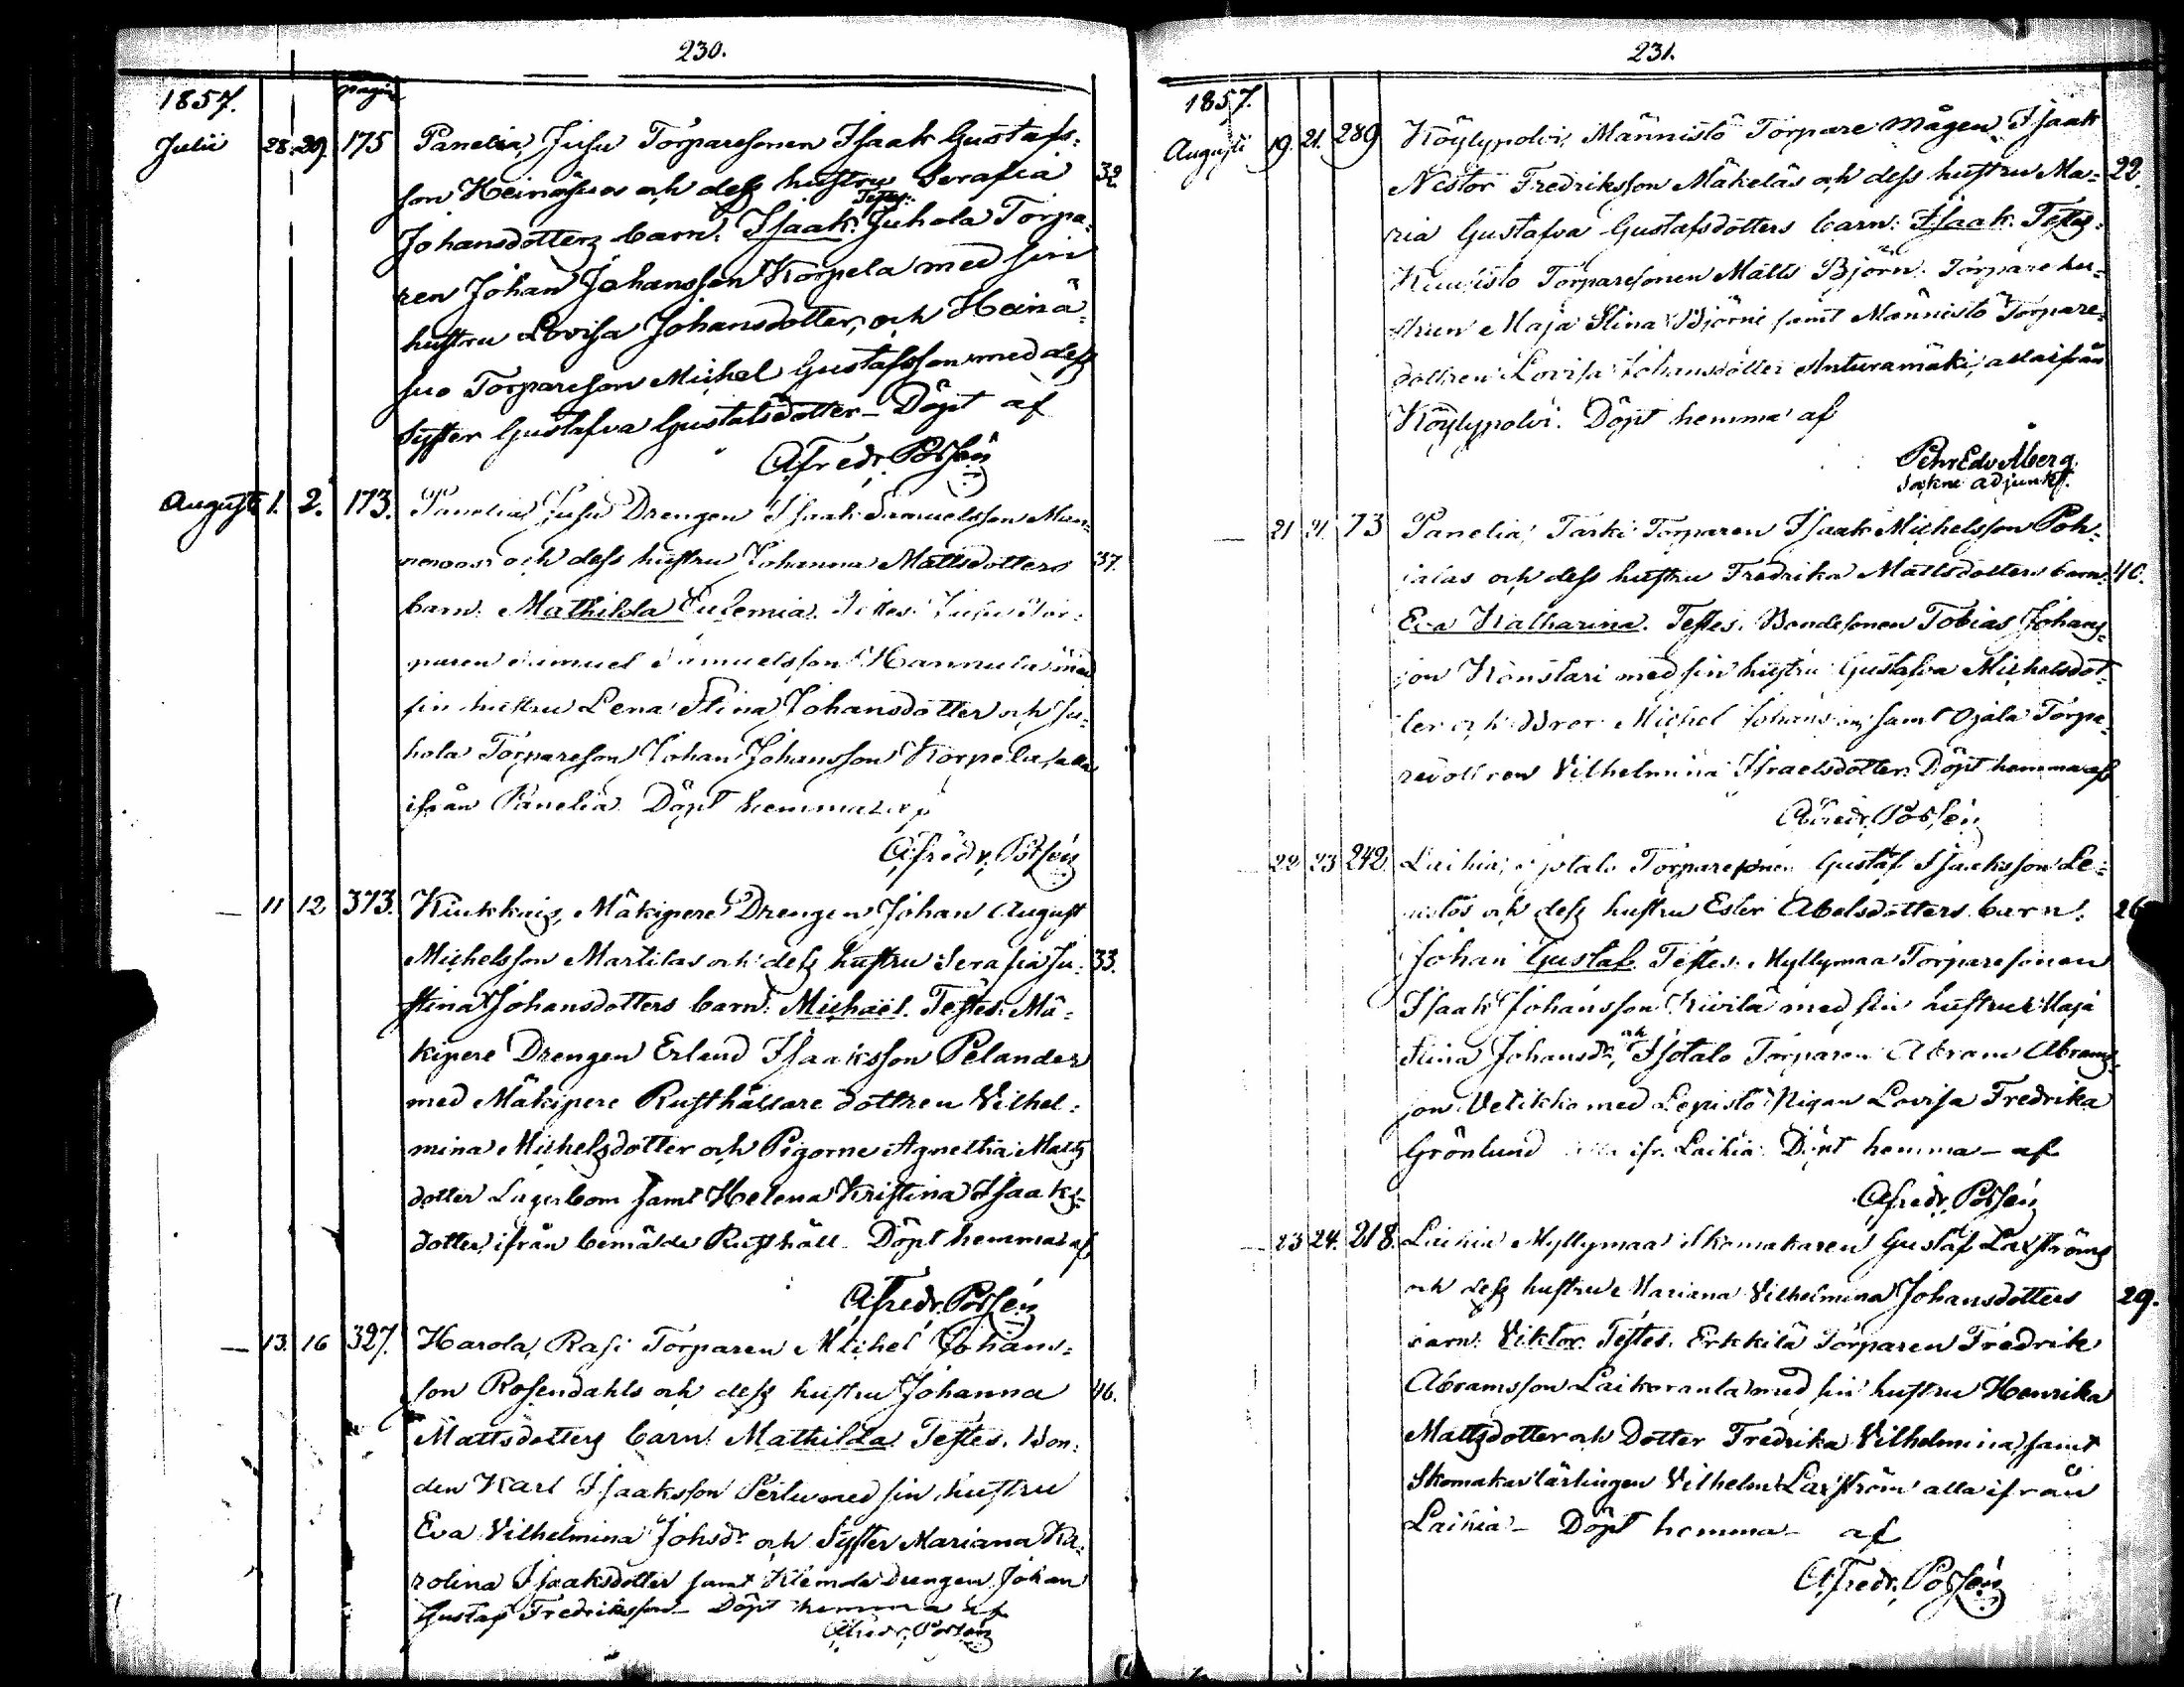 230.
1857. pagin
Julii 28. 29. 175 Panelia, Jusu Torparesonen Isaak Gustafs=
son Heinäsuos och dess hustru Serafia 32.
Johansdotters barn: Isaak. Testes: Juhola Torpa=
ren Johan Johansson Korpela med sin
hustru Lovisa Johansdotter, och Heinä=
suo Torpareson Michel Gustafsson med dess
Syster Gustafva Gustafsdotter – Döpt af
A. Fredr. Possén
Augusti 1. 2. 173. Panelia, Jusu Drengen Isaak Samuelsson Man=
och dess hustru Johanna Mattsdotters 37.
barn: Mathilda Eufemia. Testes: Jusu Tor=
paren Samuel Samuelsson Hannula med
sin hustru Lena Stina Johansdotter och Ju=
hola Torpareson Johan Johansson Korpela, alla
ifrån Panelia. Döpt hemma af
A. Fredr. Possén
— 11 12 373. Kiukkais, Mäkipere Drengen Johan August
Michelsson Martilas och dess hustru Serafia Ju= 33.
stina Johansdotters barn: Michaël. Testes: Mä=
kipere Drengen Erland Isaaksson Pelander
med Mäkipere Rusthållare dottren Vilhel=
mina Michelsdotter och Pigorne Agnetha Matts
dotter Lagerbom samt Helena Kristina Isaaks=
dotter, ifrån bemälde Rusthåll – Döpt hemma af
A. Fredr. Possén
— 13. 16 327. Harola, Rasi Torparen Michel Johans=
son Rosendahls och dess hustru Johanna 46.
Mattsdotters barn: Mathilda. Testes. Bon=
den Karl Isaaksson Perlu med sin hustru
Eva Vilhelmina Johsdr och Syster Mariana Ka=
rolina Isaaksdotter samt Klemola Drengen Johan
Gustaf Fredriksson – Döpt hemma af
A. Fredr. Possén
231.
1857.
Augusti 19. 21. 289 Köylypolvi, Männistö Torpare mågen Isaak
Nestor Fredriksson Mäkeläs och dess hustru Ma= 22.
ria Gustafva Gustafsdotters barn: Isaak. Testes:
Torparesonen Matts Björn. Torpare hu=
strun Maja Stina Björni samt Männistö Torpare=
dottren Lovisa Johansdotter Anturamäki, alla ifrån
Köylypolvi. Döpt hemma af
Pehr Edv Åberg.
Sockne adjunkt.
— 21 21. 73 Panelia, Tarki Torparen Isaak Michelsson Poh=
jalas och dess hustru Fredrika Mattsdotters barn: 40.
Eva Katharina. Testes. Bondesonen Tobias Johans=
son Könstari med sin hustru Gustafva Michelsdot=
ter och Bror Michel Johansson, samt Ojala Torpa=
redottren Vilhelmina Israelsdotter. Döpt hemma af
A. Fredr. Possén
— 22 23 242. Laihia, Torparesonen Gustaf Isaksson Le=
pistös och dess hustru Ester Abelsdotters barn. 26
Johan Gustaf. Testes: Myllymaa Torparesonen
Isaak Johansson Kivilä med sin hustru Maja
Stina Johansdr, och Isotalo Torparen Abram Abrams=
son Vetikko med Lepistö Pigan Lovisa Fredrika
Grönlund alla ifr. Laihia. Döpt hemma – af
A. Fredr. Possén
— 23 24. 218. Laihia Myllymaa Skomakaren Gustaf Laxströms
och dess hustru Mariana Vilhelmina Johansdotters 29.
barn: Viktor. Testes. Erkkilä Torparen Fredrik
Abramsson Laikoranta med sin hustru Henrika
Mattsdotter och Dotter Fredrika Vilhelmina, samt
Skomakar lärlingen Vilhelm Laxström alla ifrån
Laihia – Döpt hemma – af
A. Fredr. Possén